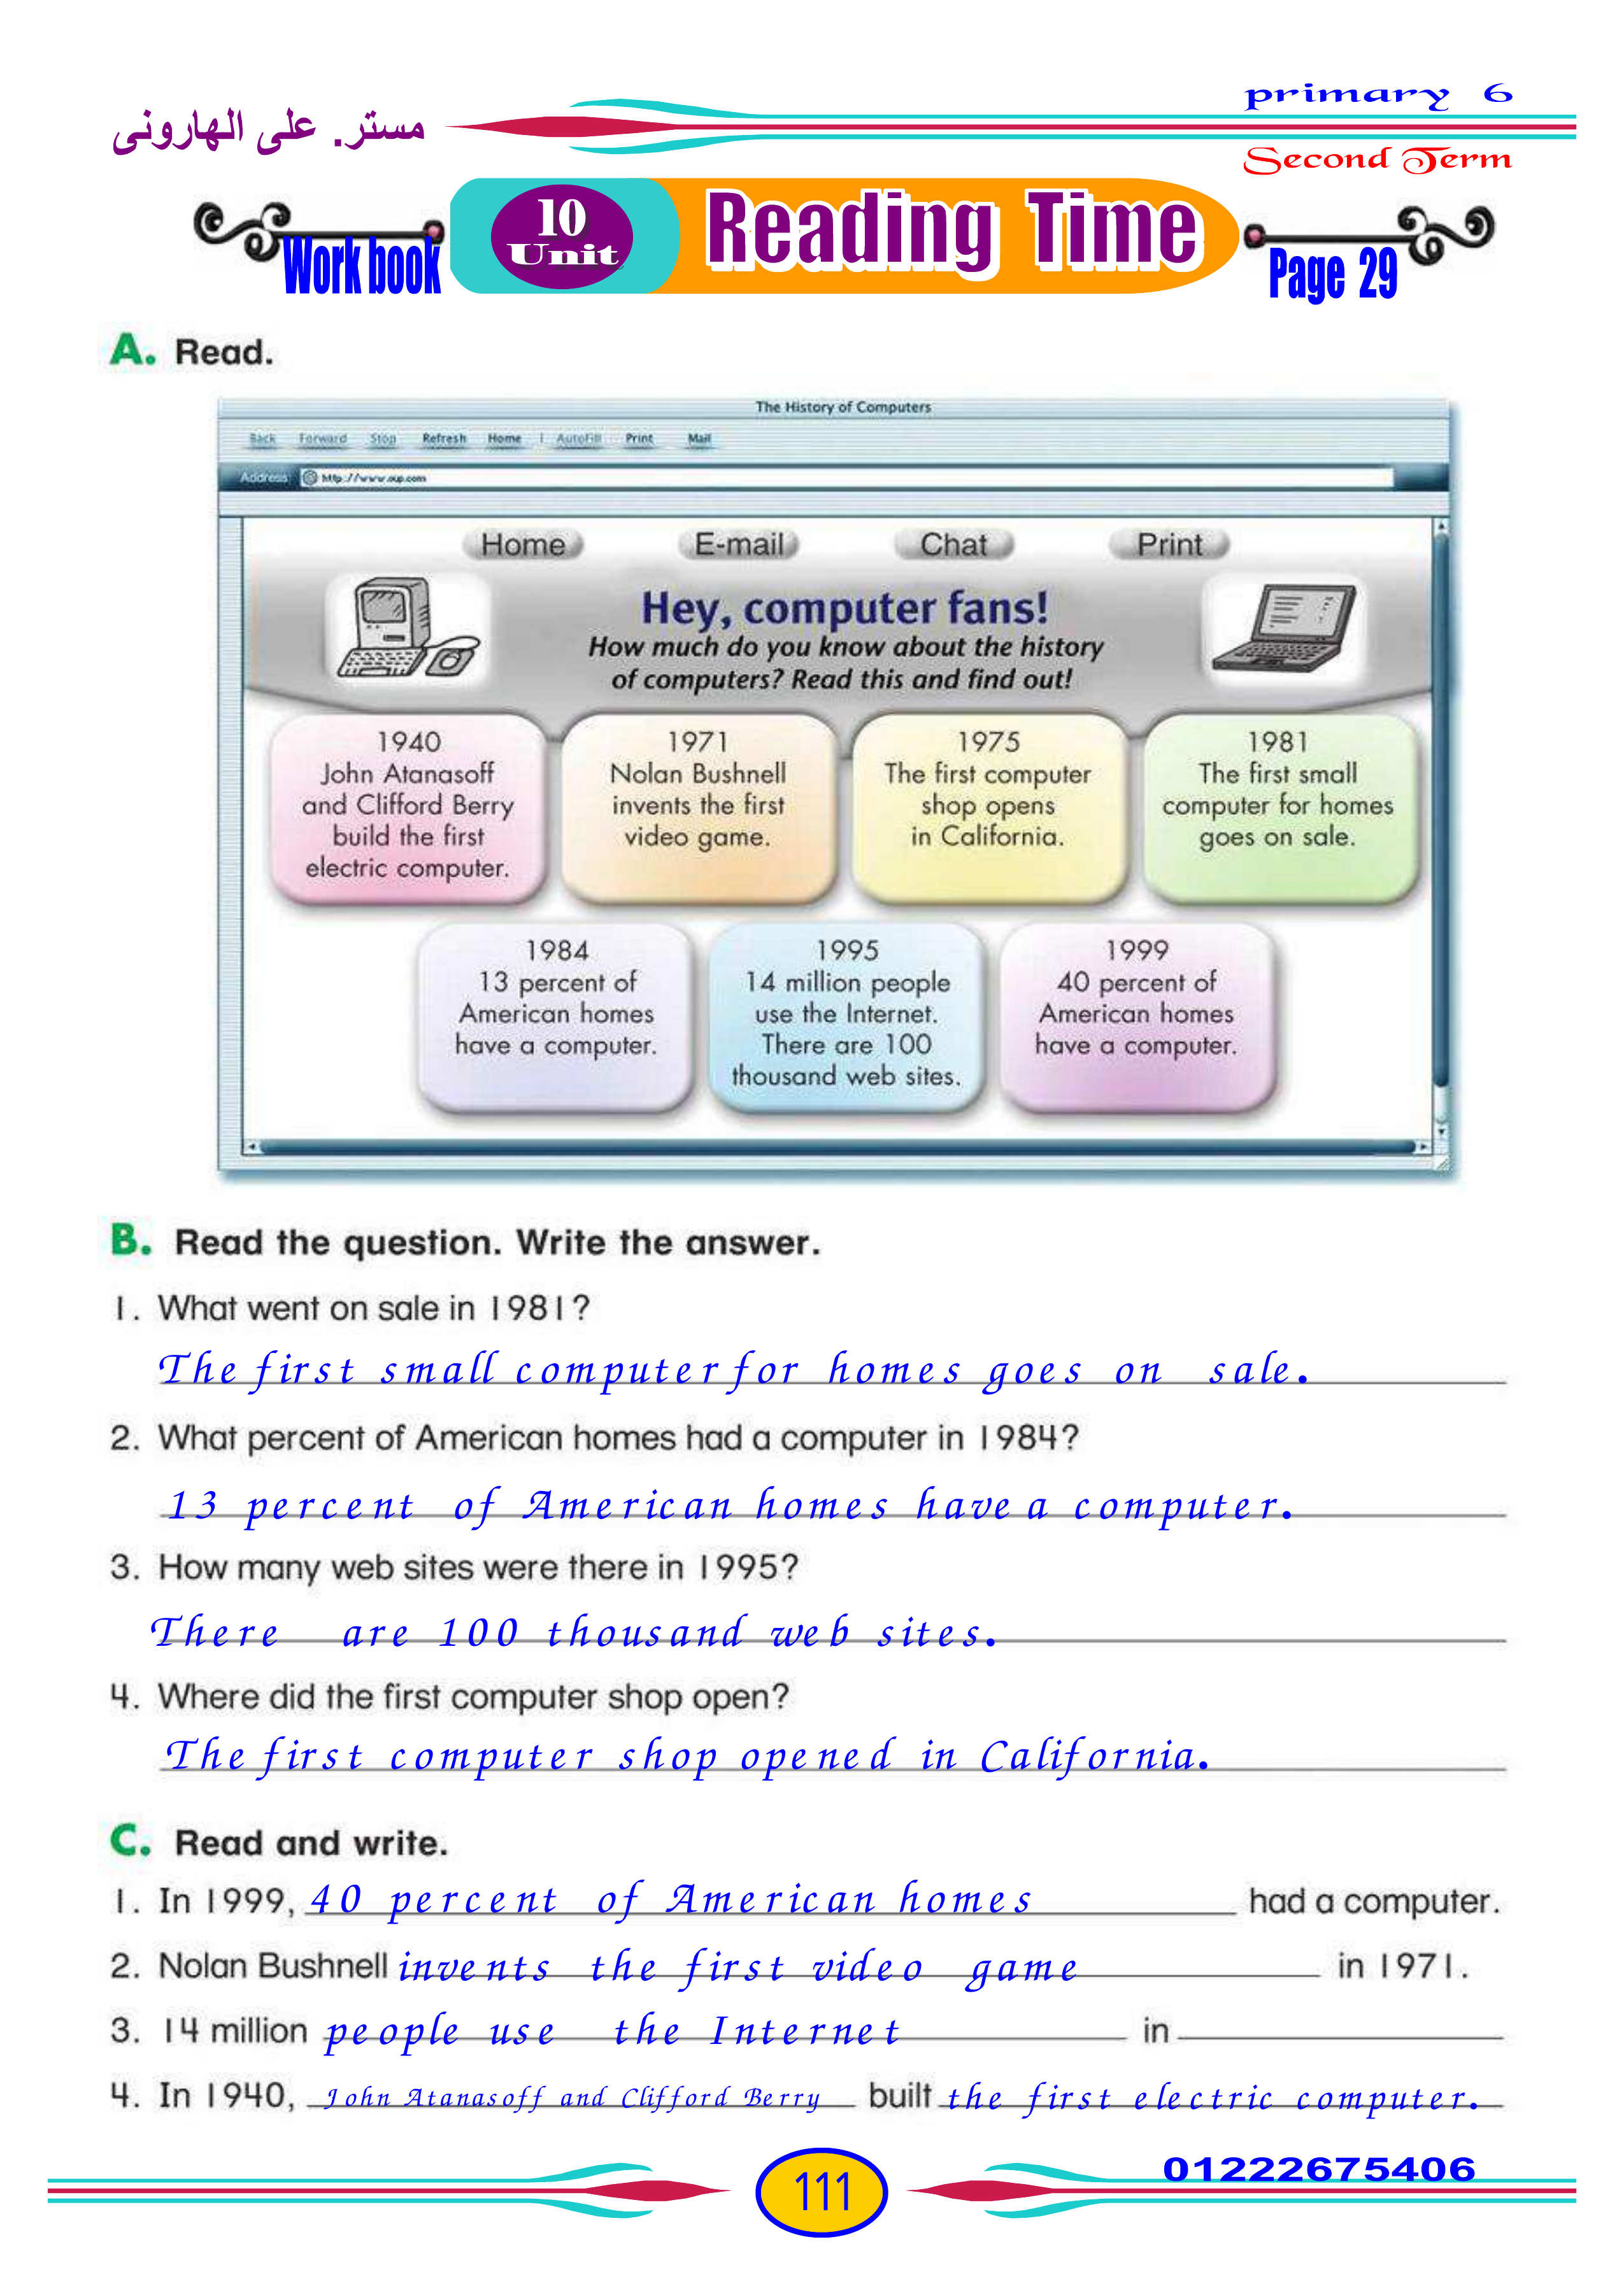 primary 6
مستر. على الهارونى
Second Term
10
Unit
Reading Time
Work book
Page 29
A. Read.
The History of Computers
Back Forward Stop Refresh Home | AutoFill Print Mail
Address http://www.oup.com
Home E-mail Chat Print
Hey, computer fans!
How much do you know about the history
of computers? Read this and find out!
1940
John Atanasoff
and Clifford Berry
build the first
electric computer.
1971
Nolan Bushnell
invents the first
video game.
1975
The first computer
shop opens
in California.
1981
The first small
computer for homes
goes on sale.
1984
13 percent of
American homes
have a computer.
1995
14 million people
use the Internet.
There are 100
thousand web sites.
1999
40 percent of
American homes
have a computer.
B. Read the question. Write the answer.
1. What went on sale in 1981?
The first small computer for homes goes on sale.
2. What percent of American homes had a computer in 1984?
13 percent of American homes have a computer.
3. How many web sites were there in 1995?
There are 100 thousand web sites.
4. Where did the first computer shop open?
The first computer shop opened in California.
C. Read and write.
1. In 1999, 40 percent of American homes had a computer.
2. Nolan Bushnell invents the first video game in 1971.
3. 14 million people use the Internet in
4. In 1940, John Atanasoff and Clifford Berry built the first electric computer.
01222675406
111